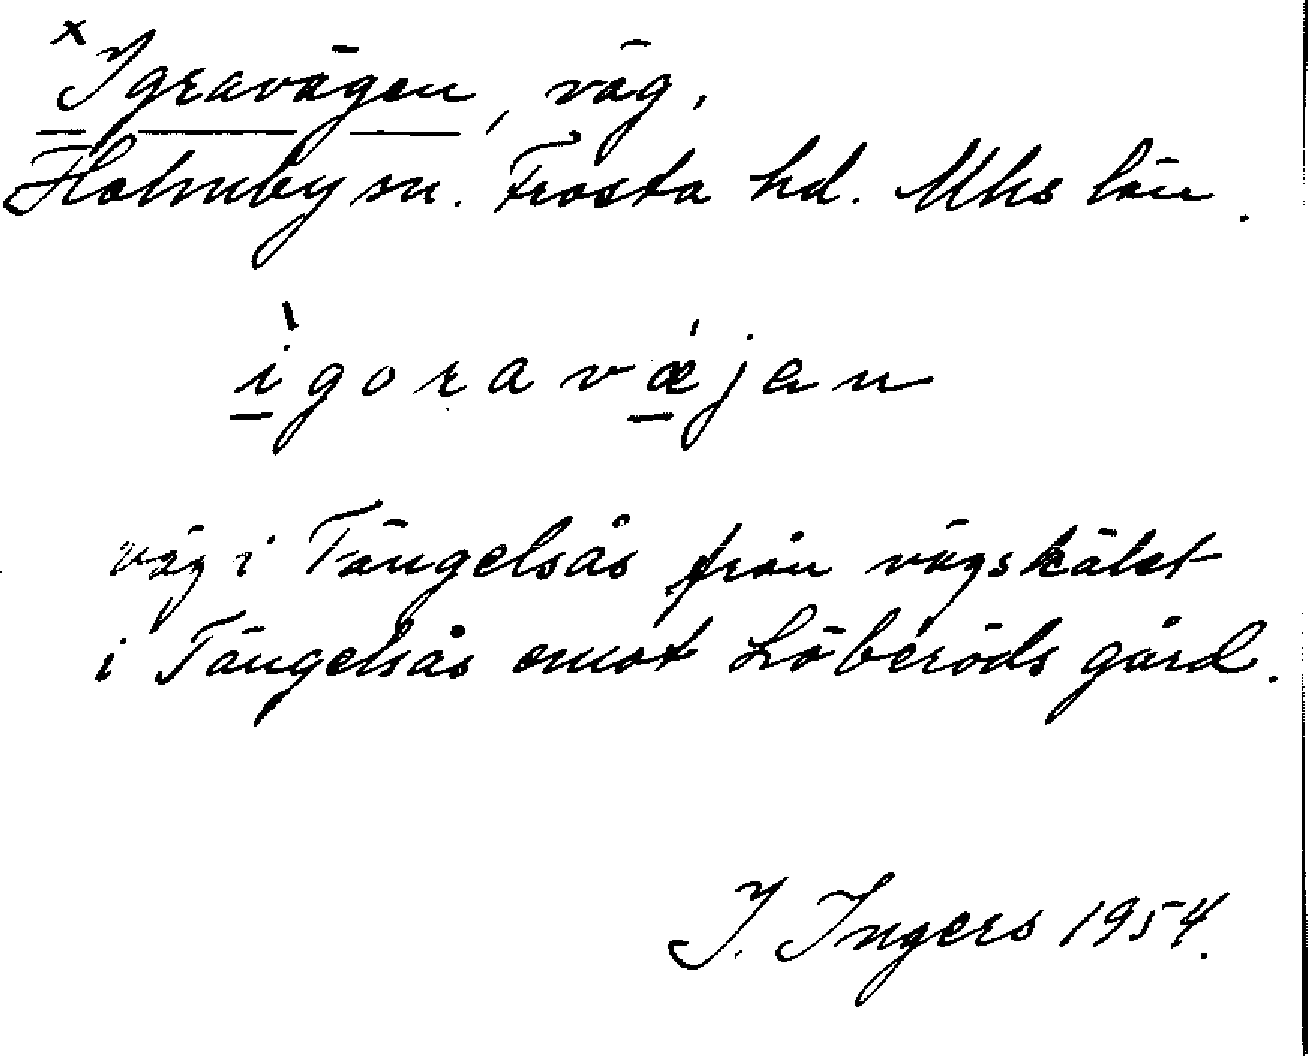 x Igravägen, väg,
Holmby sn. Frosta hd. Mhs län.
ìgoravǽjan
väg i Tängelsås från vägskälet
i Tängelsås emot Löberöds gård.
I. Ingers 1954.